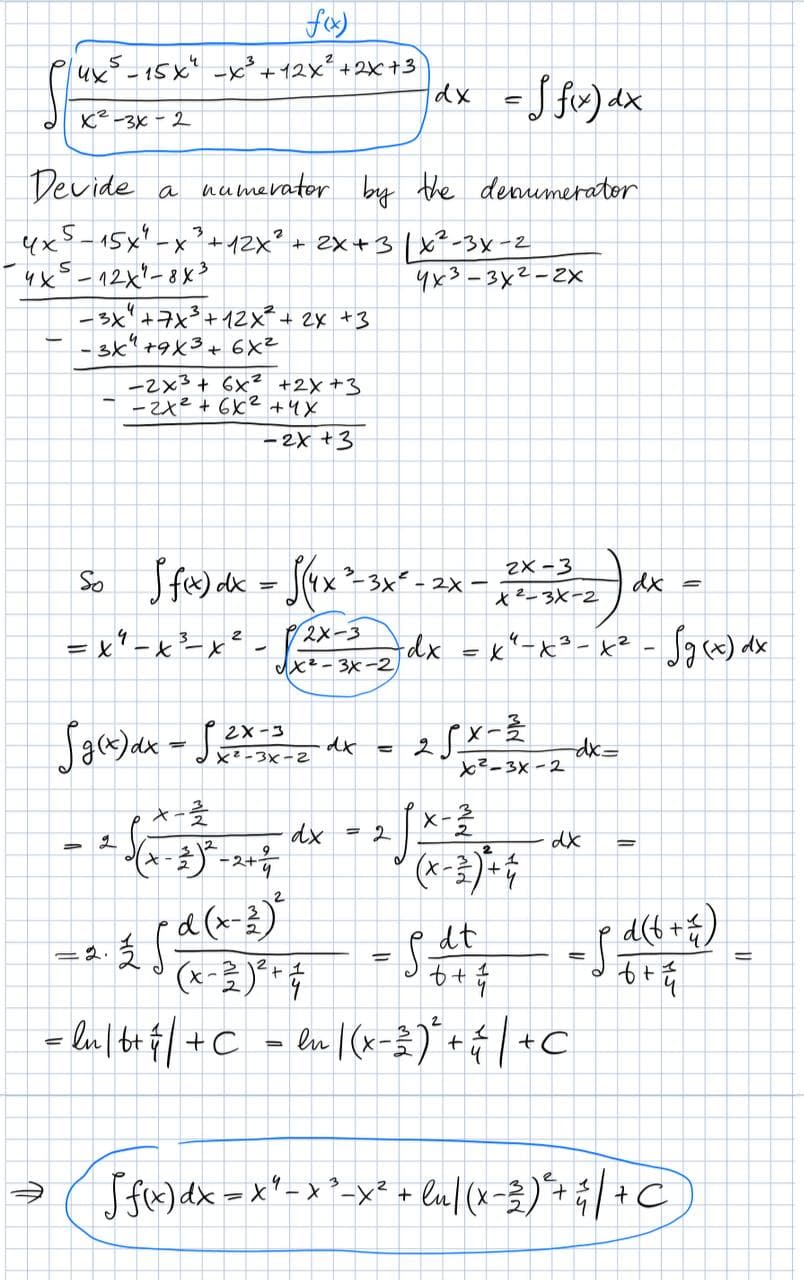 f(x)
∫ (4x⁵ - 15x⁴ - x³ + 12x² + 2x + 3)/(x² - 3x - 2) dx = ∫ f(x) dx
Devide a numerator by the denumerator
4x⁵ - 15x⁴ - x³ + 12x² + 2x + 3 | x² - 3x - 2
- 4x⁵ - 12x⁴ - 8x³ 4x³ - 3x² - 2x
-3x⁴ + 7x³ + 12x² + 2x + 3
- -3x⁴ + 9x³ + 6x²
-2x³ + 6x² + 2x + 3
- -2x² + 6x² + 4x
-2x + 3
So ∫ f(x) dx = ∫ (4x³ - 3x² - 2x - (2x-3)/(x² - 3x - 2)) dx =
= x⁴ - x³ - x² - ∫ (2x-3)/(x² - 3x - 2) dx = x⁴ - x³ - x² - ∫ g(x) dx
∫ g(x) dx = ∫ (2x-3)/(x² - 3x - 2) dx = 2 ∫ (x - 3/2)/(x² - 3x - 2) dx =
= 2 ∫ (x - 3/2)/((x - 3/2)² - 2 + 9/4) dx = 2 ∫ (x - 3/2)/((x - 3/2)² + 1/4) dx =
= 2 · 1/2 ∫ d(x - 3/2)²/((x - 3/2)² + 1/4) = ∫ dt/(t + 1/4) = ∫ d(t + 1/4)/(t + 1/4) =
= ln|t + 1/4| + C = ln|(x - 3/2)² + 1/4| + C
⇒ ∫ f(x) dx = x⁴ - x³ - x² + ln|(x - 3/2)² + 1/4| + C